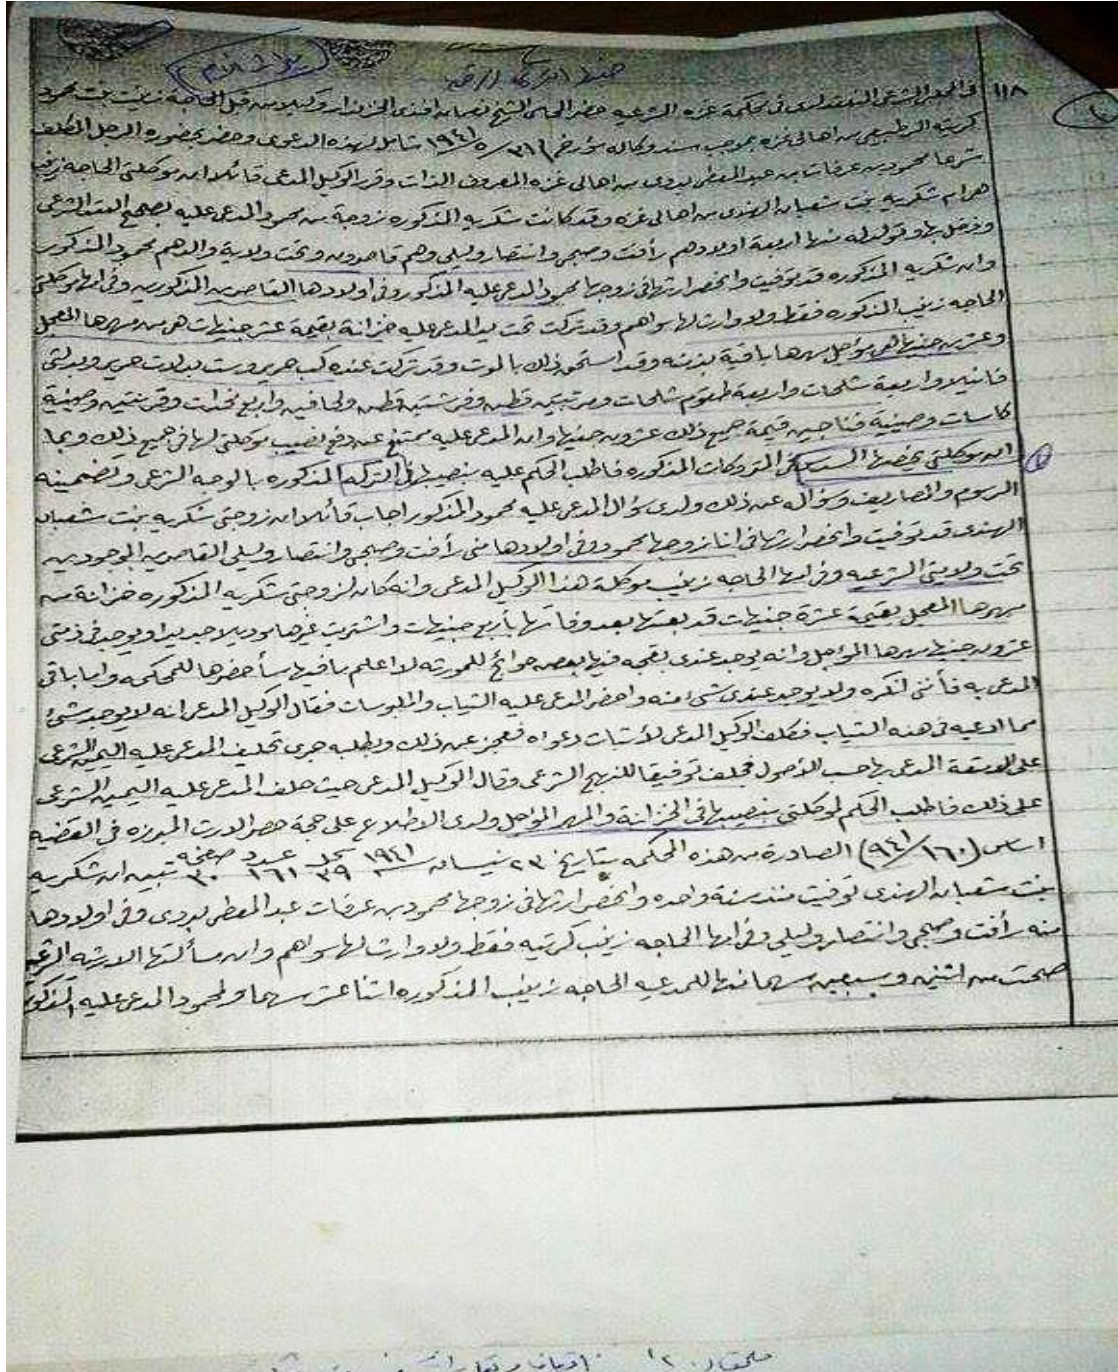 ١١٨ في المجلس الشرعي المنعقد لدى محكمة غزه الشرعيه حضر المحامي الشيخ شعبان افندي الخزندار وكيلا من قبل الحاجه زينب بنت محمود
من اهالي غزه بموجب سند وكاله مؤرخ ٣١/٥/١٩٤١ شامل لهذه الدعوى وحضر بحضوره الرجل المكلف
شرعا محمود بن عرفات بن عبد المعطي بدوى من اهالى غزه المعروف الذات وقرر الوكيل المدعى قائلا ان موكلتى الحاجه زينب
هى ام شكريه بنت شعبان الهندى من اهالى غزه وقد كانت شكريه المذكوره زوجة من محمود المدعى عليه بصحيح العقد الشرعى
ودخل بها وتولد له منها اربعة اولاد هم رأفت وصبحى وانتصار وليلى وهم قاصرون وتحت ولاية والدهم محمود المذكور
وان شكريه المذكوره قد توفيت وانحصر ارثها فى زوجها محمود المدعى عليه المذكور وفى اولادها القاصرين المذكورين وفى امها موكلتى
الحاجه زينب المذكوره فقط ولا وارث لها سواهم وقد تركت تحت يد المدعى عليه خزانة بقيمة عشر جنيهات هى من مهرها المعجل
وعشرين جنيها هى مؤجل مهرها باقية بذمته وقد استحق ذلك بالموت وقد تركت عنده حرير وست بدلات حرير
فانيلا واربعة شلحات واربعة طقوم شلحات ومرتبتين قطن وفرشتين قطن ولحافين واربع مخدات وصينية
كاسات وصينية فناجين قيمة جميع ذلك عشرون جنيها وان المدعى عليه ممتنع عن دفع نصيب موكلتى لها فى جميع ذلك وبما
ان موكلتى يخصها السدس فى المتروكات المذكوره فاطلب الحكم عليه بنصيبها فى التركه المذكوره بالوجه الشرعى وتضمينه
الرسوم والمصاريف وسؤاله عن ذلك ولدى سؤال المدعى عليه محمود المذكور اجاب قائلا ان زوجتى شكريه بنت شعبان
الهندى قد توفيت وانحصر ارثها فى انا زوجها محمود وفى اولادها منى رأفت وصبحى وانتصار وليلى القاصرين الموجودين
تحت ولايتى الشرعيه وفى امها الحاجه زينب موكلة هذا الوكيل المدعى وانه كان لزوجتى شكريه المذكوره خزانة من
مهرها المعجل بقيمة عشرة جنيهات قد بعتها بعد وفاتها بأربع جنيهات واشتريت غيرها ويوجد فى ذمتى
عشرون جنيها مهرها المؤجل وانه يوجد عندى بقجه فيها بعض حوائج للمورثه لا اعلم ما فيها سأحضرها للمحكمه واما باقى
المدعى به فأننى انكره ولا يوجد عندى شئ منه واحضر المدعى عليه الثياب والملبوسات فقال الوكيل المدعى انه لا يوجد شئ
مما ادعيه فى هذه الثياب فكلف الوكيل المدعى لأثبات دعواه فعجز عن ذلك وبطلبه جرى تحليف المدعى عليه اليمين الشرعى
على الامتعة المدعى بها حسب الاصول فحلف توفيقا للنهج الشرعى وقال الوكيل المدعى حيث حلف المدعى عليه اليمين الشرعى
على ذلك فاطلب الحكم لموكلتى بنصيبها فى الخزانة والمهر المؤجل ولدى الاطلاع على حجة حصر الارث المبرزه فى القضيه
اساس (١٦٠/٩٤١) الصادرة من هذه المحكمه بتاريخ ٢٣ نيسان ١٩٤١ سجل ٣٩ عدد ١٦١ صفحه ٣٠ تبين ان شكريه
بنت شعبان الهندى توفيت منذ سنة واحده وانحصر ارثها فى زوجها محمود بن عرفات عبد المعطى بدوى وفى اولادها
منه رأفت وصبحى وانتصار وليلى وفى امها الحاجه زينب فقط ولا وارث لها سواهم وان مسألتها الارثيه الشرعيه
صحت من اثنين وسبعين سهما منها للمدعيه الحاجه زينب المذكوره اثنا عشر سهما ولمحمود المدعى عليه المذكور